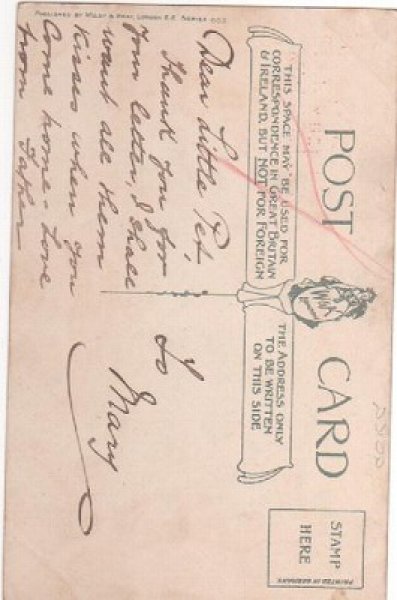 PUBLISHED BY WILDT & KRAY, LONDON E.C. SERIES
POST CARD
THIS SPACE MAY BE USED FOR
CORRESPONDENCE IN GREAT BRITAIN
& IRELAND, BUT NOT FOR FOREIGN
THE ADDRESS ONLY
TO BE WRITTEN
ON THIS SIDE
STAMP
HERE
PRINTED IN GERMANY
Dear Little Pet,
Thank you for
your letter, I shall
want all them
Kisses when you
Come home - Love
from Father
To
Mary